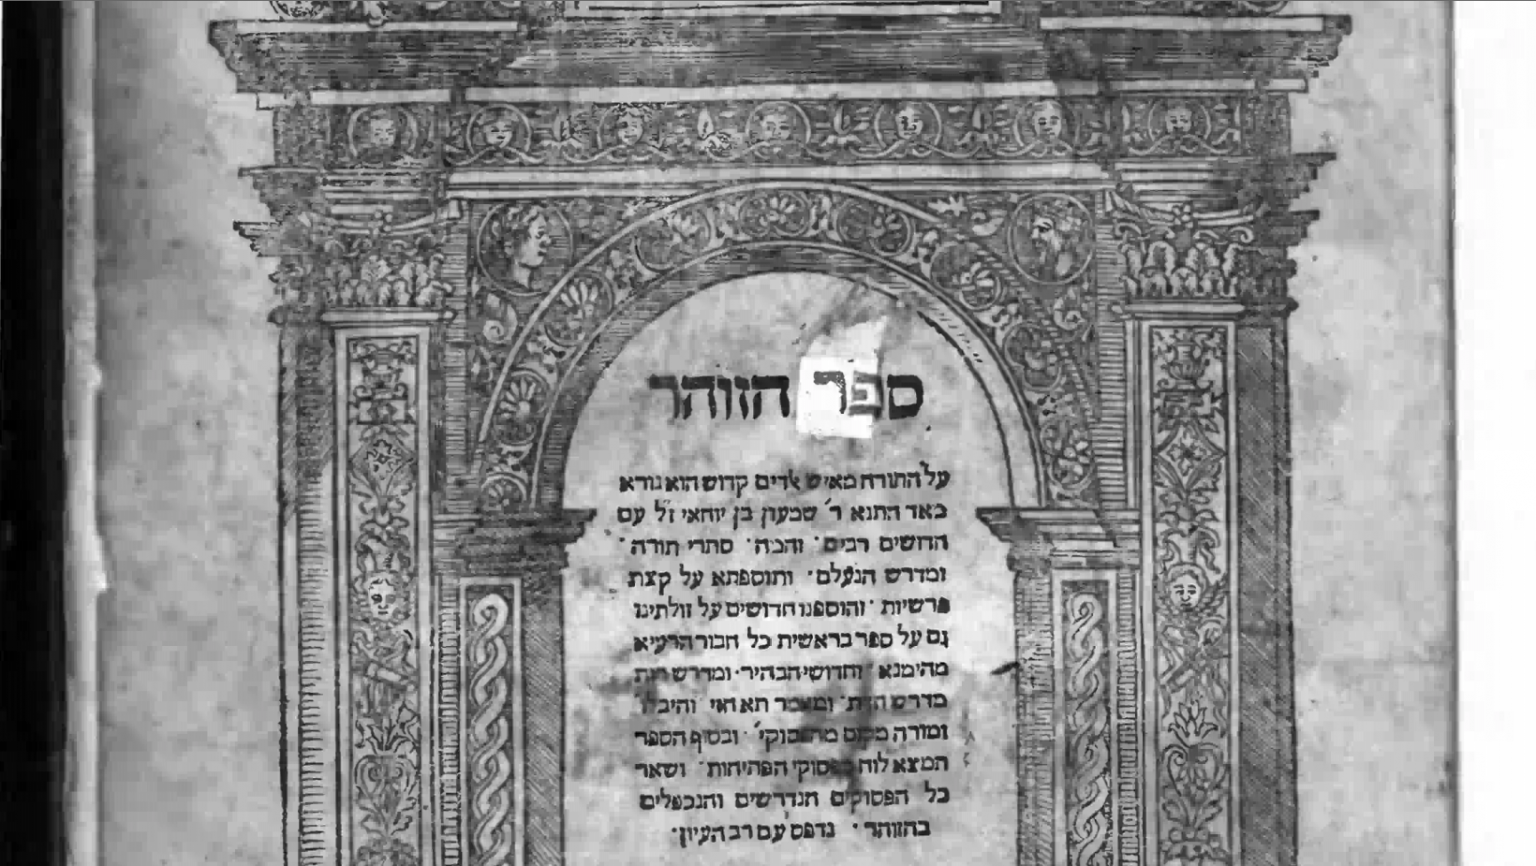 ספר הזוהר
על התורה מאיש אלדים קדוש הוא נורא
מאד התנא ר' שמעון בן יוחאי ז"ל עם
חדושים רבים· והמה· סתרי תורה·
ומדרש הנעלם· ותוספתא על קצת
פרשיות· והוספנו חדושים על זולתינו
גם על ספר בראשית כל חבור הרעיא
מהימנא· וחדושי הבהיר· ומדרש רות
מדרש חזית· ומאמר תא חזי· והיכלו'
ומורה מקום מהפסוקי'· ובסוף הספר
תמצא לוח מפסוקי הפתיחות· ושאר
כל הפסוקים הנדרשים והנכפלים
בהזוהר· נדפס עם רב העיון·